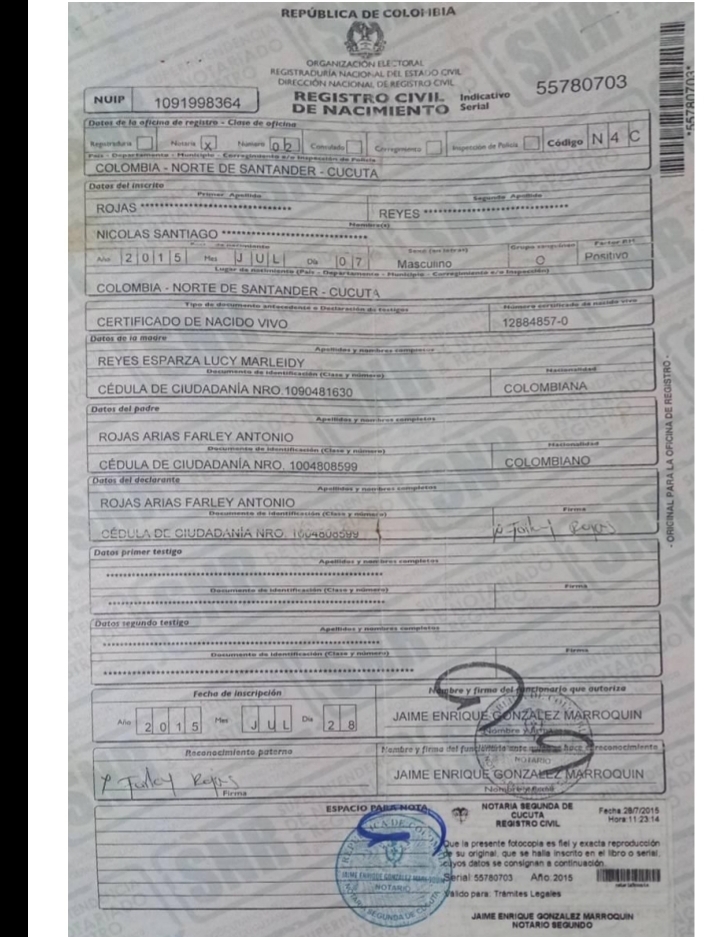 REPÚBLICA DE COLOMBIA
ORGANIZACIÓN ELECTORAL
REGISTRADURÍA NACIONAL DEL ESTADO CIVIL
DIRECCIÓN NACIONAL DE REGISTRO CIVIL
NUIP 1091998364
REGISTRO CIVIL DE NACIMIENTO
Indicativo Serial 55780703
*55780703*
Datos de la oficina de registro - Clase de oficina
Registraduría Notaría X Número 0 2 Consulado Corregimiento Inspección de Policía Código N 4 C
País - Departamento - Municipio - Corregimiento e/o Inspección de Policía
COLOMBIA - NORTE DE SANTANDER - CUCUTA
Datos del inscrito
Primer Apellido Segundo Apellido
ROJAS ******************************* REYES *****************************
Nombre(s)
NICOLAS SANTIAGO ******************************
Año 2 0 1 5 Mes J U L Día 0 7 Masculino O Positivo
Sexo (en letras) Grupo sanguíneo Factor RH
Lugar de nacimiento (País - Departamento - Municipio - Corregimiento e/o Inspección)
COLOMBIA - NORTE DE SANTANDER - CUCUTA
Tipo de documento antecedente o Declaración de testigos Número certificado de nacido vivo
CERTIFICADO DE NACIDO VIVO 12884857-0
Datos de la madre
Apellidos y nombres completos
REYES ESPARZA LUCY MARLEIDY
Documento de identificación (Clase y número) Nacionalidad
CÉDULA DE CIUDADANÍA NRO.1090481630 COLOMBIANA
Datos del padre
Apellidos y nombres completos
ROJAS ARIAS FARLEY ANTONIO
Documento de identificación (Clase y número) Nacionalidad
CÉDULA DE CIUDADANÍA NRO. 1004808599 COLOMBIANO
Datos del declarante
Apellidos y nombres completos
ROJAS ARIAS FARLEY ANTONIO
Documento de identificación (Clase y número) Firma
CÉDULA DE CIUDADANÍA NRO. 1004808599
Datos primer testigo
Apellidos y nombres completos
*********************************************************
Documento de identificación (Clase y número) Firma
*********************************************************
Datos segundo testigo
Apellidos y nombres completos
*********************************************************
Documento de identificación (Clase y número) Firma
****************************************************************
- ORIGINAL PARA LA OFICINA DE REGISTRO -
Fecha de inscripción Nombre y firma del funcionario que autoriza
Año 2 0 1 5 Mes J U L Día 2 8
JAIME ENRIQUE GONZALEZ MARROQUIN
Nombre y firma
Reconocimiento paterno Nombre y firma del funcionario ante quien se hace el reconocimiento
JAIME ENRIQUE GONZALEZ MARROQUIN
Firma Nombre y firma
ESPACIO PARA NOTA
NOTARIA SEGUNDA DE CUCUTA
REGISTRO CIVIL
Fecha 28/7/2015
Hora 11:23:14
Que la presente fotocopia es fiel y exacta reproducción
de su original, que se halla inscrito en el libro o serial,
cuyos datos se consignan a continuación.
Serial 55780703 Año 2015
Válido para: Trámites Legales
JAIME ENRIQUE GONZALEZ MARROQUIN
NOTARIO SEGUNDO
REPUBLICA DE COLOMBIA
JAIME ENRIQUE GONZALEZ MARROQUIN
NOTARIO
SEGUNDA DE CUCUTA